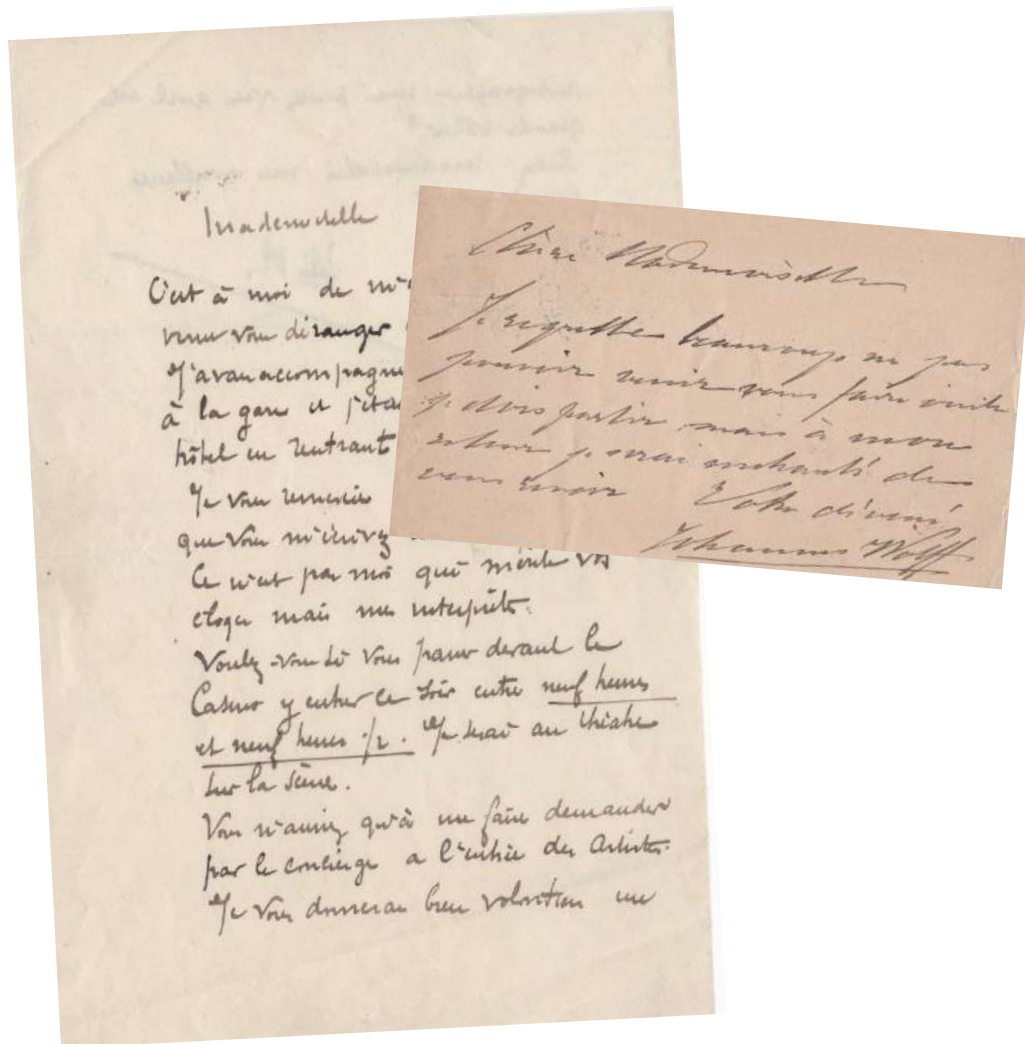 Mademoiselle
C'est à moi de m'e
venu vous déranger
J'avais accompagné
à la gare et j'étai
hôtel en rentrant
Je vous remercie
que vous m'écrivez
Ce n'est pas moi qui mérite vos
éloges mais mes interprètes.
Voulez-vous si vous passez devant le
Casino y entrer ce soir entre neuf heures
et neuf heures 1/2. Je serai au théâtre
sur la scène.
Vous n'aurez qu'à me faire demander
par le concierge a l'entrée des Artistes.
Je vous donnerai bien volontiers une
Chère Mademoiselle
Je regrette beaucoup ne pas
pouvoir venir vous faire visite
je dois partir mais à mon
retour je serai enchanté de
vous revoir Votre dévoué
Johannes Wolff